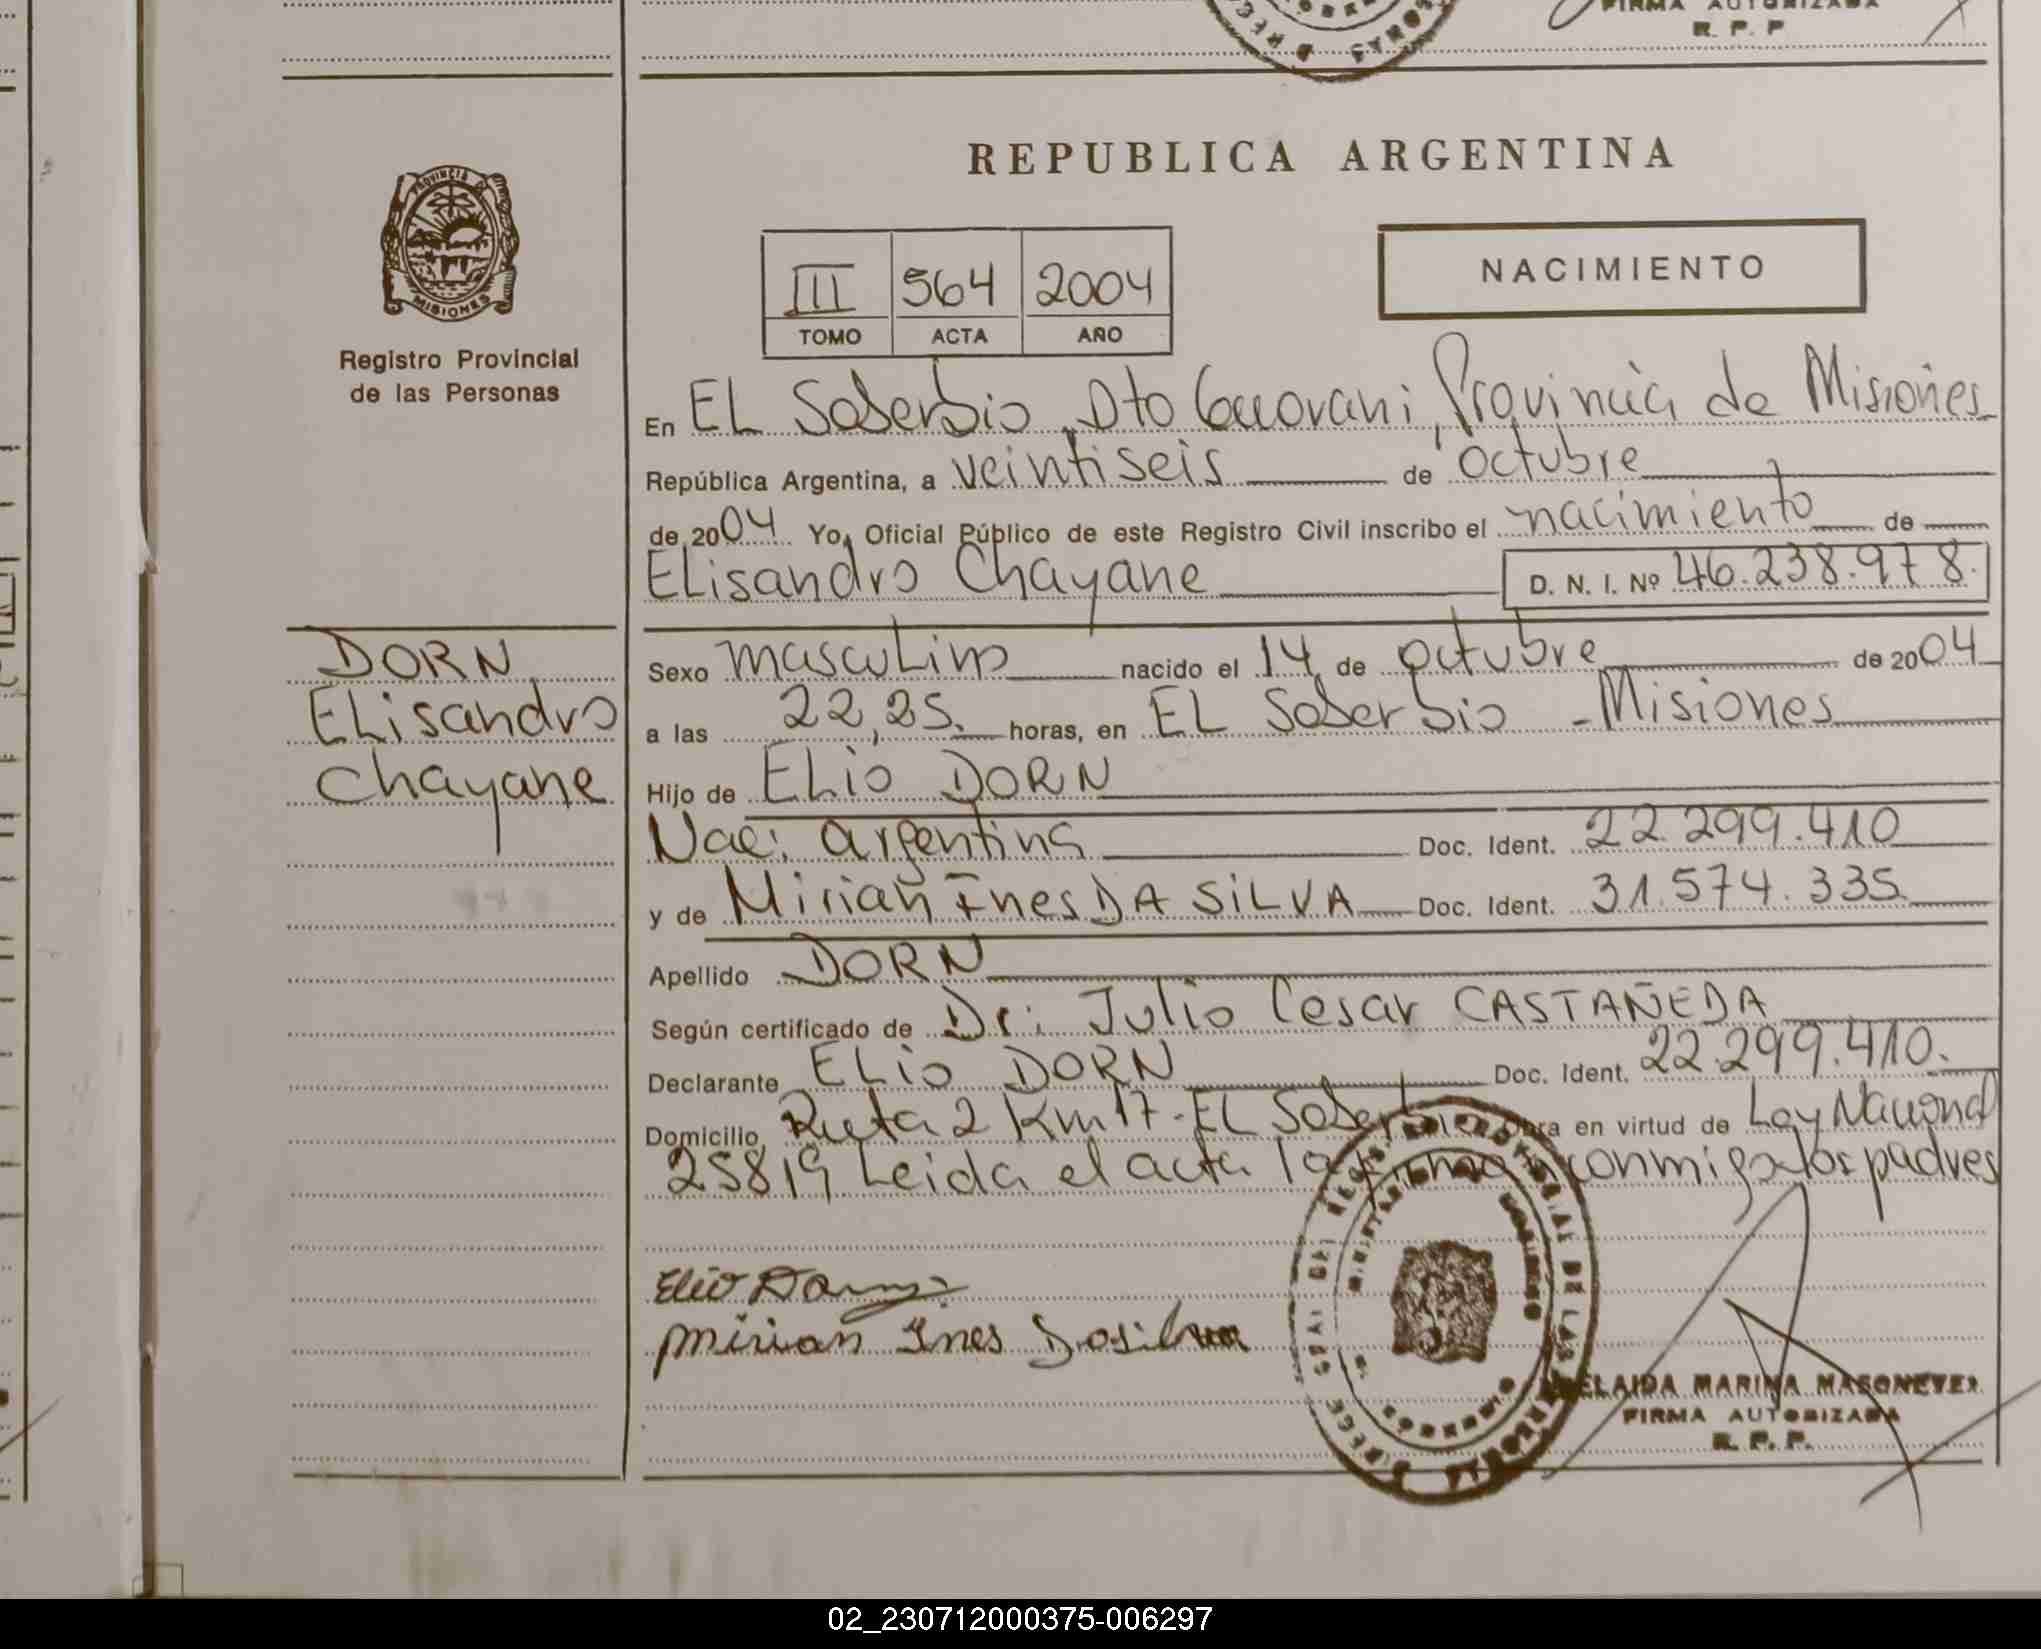 FIRMA AUTORIZADA
R. P. P
PROVINCIA DE
MISIONES
Registro Provincial
de las Personas
REPUBLICA ARGENTINA
III 564 2004
TOMO ACTA AÑO
NACIMIENTO
En EL Soberbio Dto Guarani, Provincia de Misiones
República Argentina, a veintiseis de octubre
de 2004 Yo, Oficial Público de este Registro Civil inscribo el nacimiento de
Elisandro Chayane D. N. I. Nº 46.238.978.
DORN
Elisandro
Chayane
Sexo masculino nacido el 14 de octubre de 2004
a las 22,25. horas, en EL Soberbio - Misiones
Hijo de Elio DORN
Nac: argentina Doc. Ident. 22.299.410
y de Mirian Ines DA SILVA Doc. Ident. 31.574.335
Apellido DORN
Según certificado de Dr: Julio Cesar CASTAÑEDA
Declarante Elio DORN Doc. Ident. 22.299.410.
Domicilio Ruta 2 Km 17 - EL Soberbio Obra en virtud de Ley Nacional
25819 Leida el acta la firman conmigo los padres
Elio Dorn
Mirian Ines Dasilva
MARINA
FIRMA AUTORIZADA
R. P. P.
02_230712000375-006297